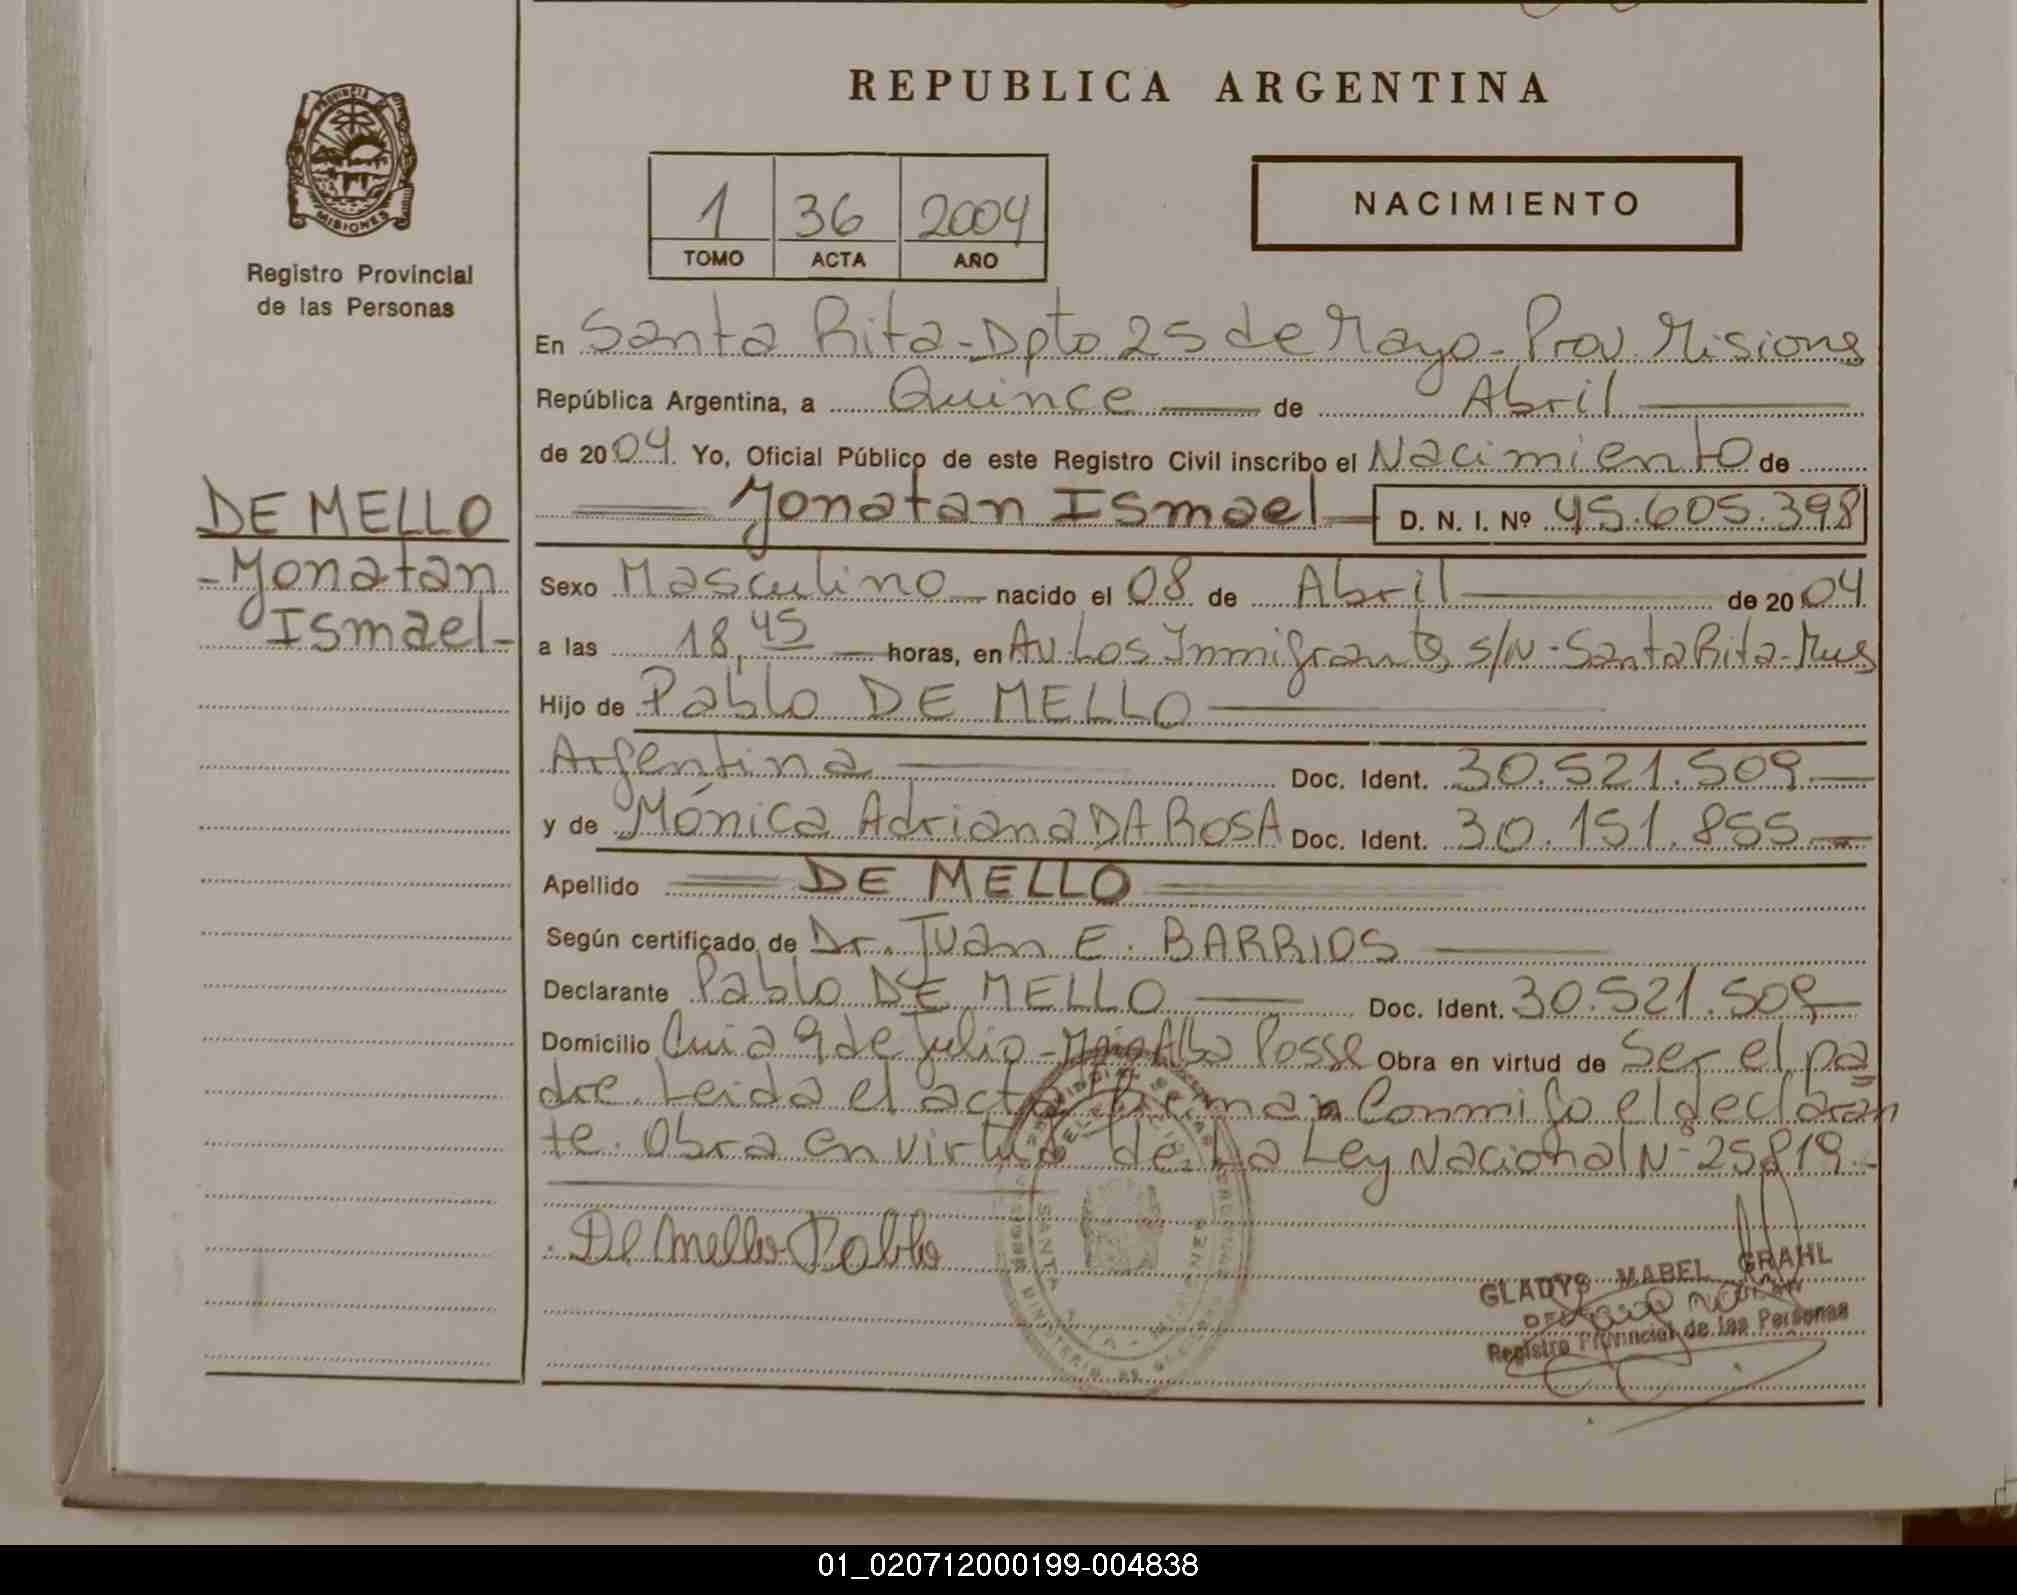 REPUBLICA ARGENTINA
PROVINCIA DE
MISIONES
Registro Provincial
de las Personas
1 36 2004
TOMO ACTA AÑO
NACIMIENTO
DE MELLO
- Yonatan
Ismael -
En Santa Rita - Dpto 25 de Mayo - Prov. Misiones
República Argentina, a Quince de Abril
de 2004. Yo, Oficial Público de este Registro Civil inscribo el Nacimiento de
Yonatan Ismael D. N. I. Nº 45.605.398
Sexo Masculino nacido el 08 de Abril de 2004
a las 18,45 horas, en Av. Los Inmigrantes s/N - Santa Rita - Mnes
Hijo de Pablo DE MELLO
Argentina Doc. Ident. 30.521.509
y de Mónica Adriana DA ROSA Doc. Ident. 30.151.855
Apellido DE MELLO
Según certificado de Dr. Juan E. BARRIOS
Declarante Pablo DE MELLO Doc. Ident. 30.521.509
Domicilio 9 de Julio - Alba Posse Obra en virtud de Ser el pa
dre. Leida el acta Firman Conmigo el declaran
te. Obra en virtud de La Ley Nacional Nº 25819.-
De Mello Pablo
SANTA RITA - MISIONES
GLADYS MABEL GRAHL
Registro Provincial de las Personas
01_020712000199-004838